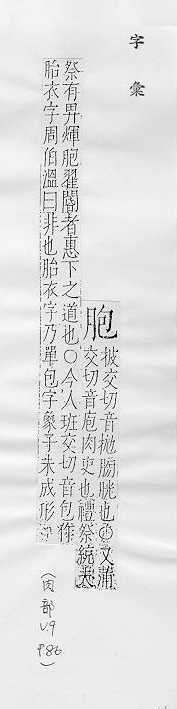 字彙
胞
披交切音抛胸胱也又蒲
交切音庖肉吏也禮祭統夫
祭有畀煇胞翟閽者惠下之道也〇今人班交切音包作
胎衣字周伯溫曰非也胎衣字乃單包字象子未成形
(肉部
V9
P86)